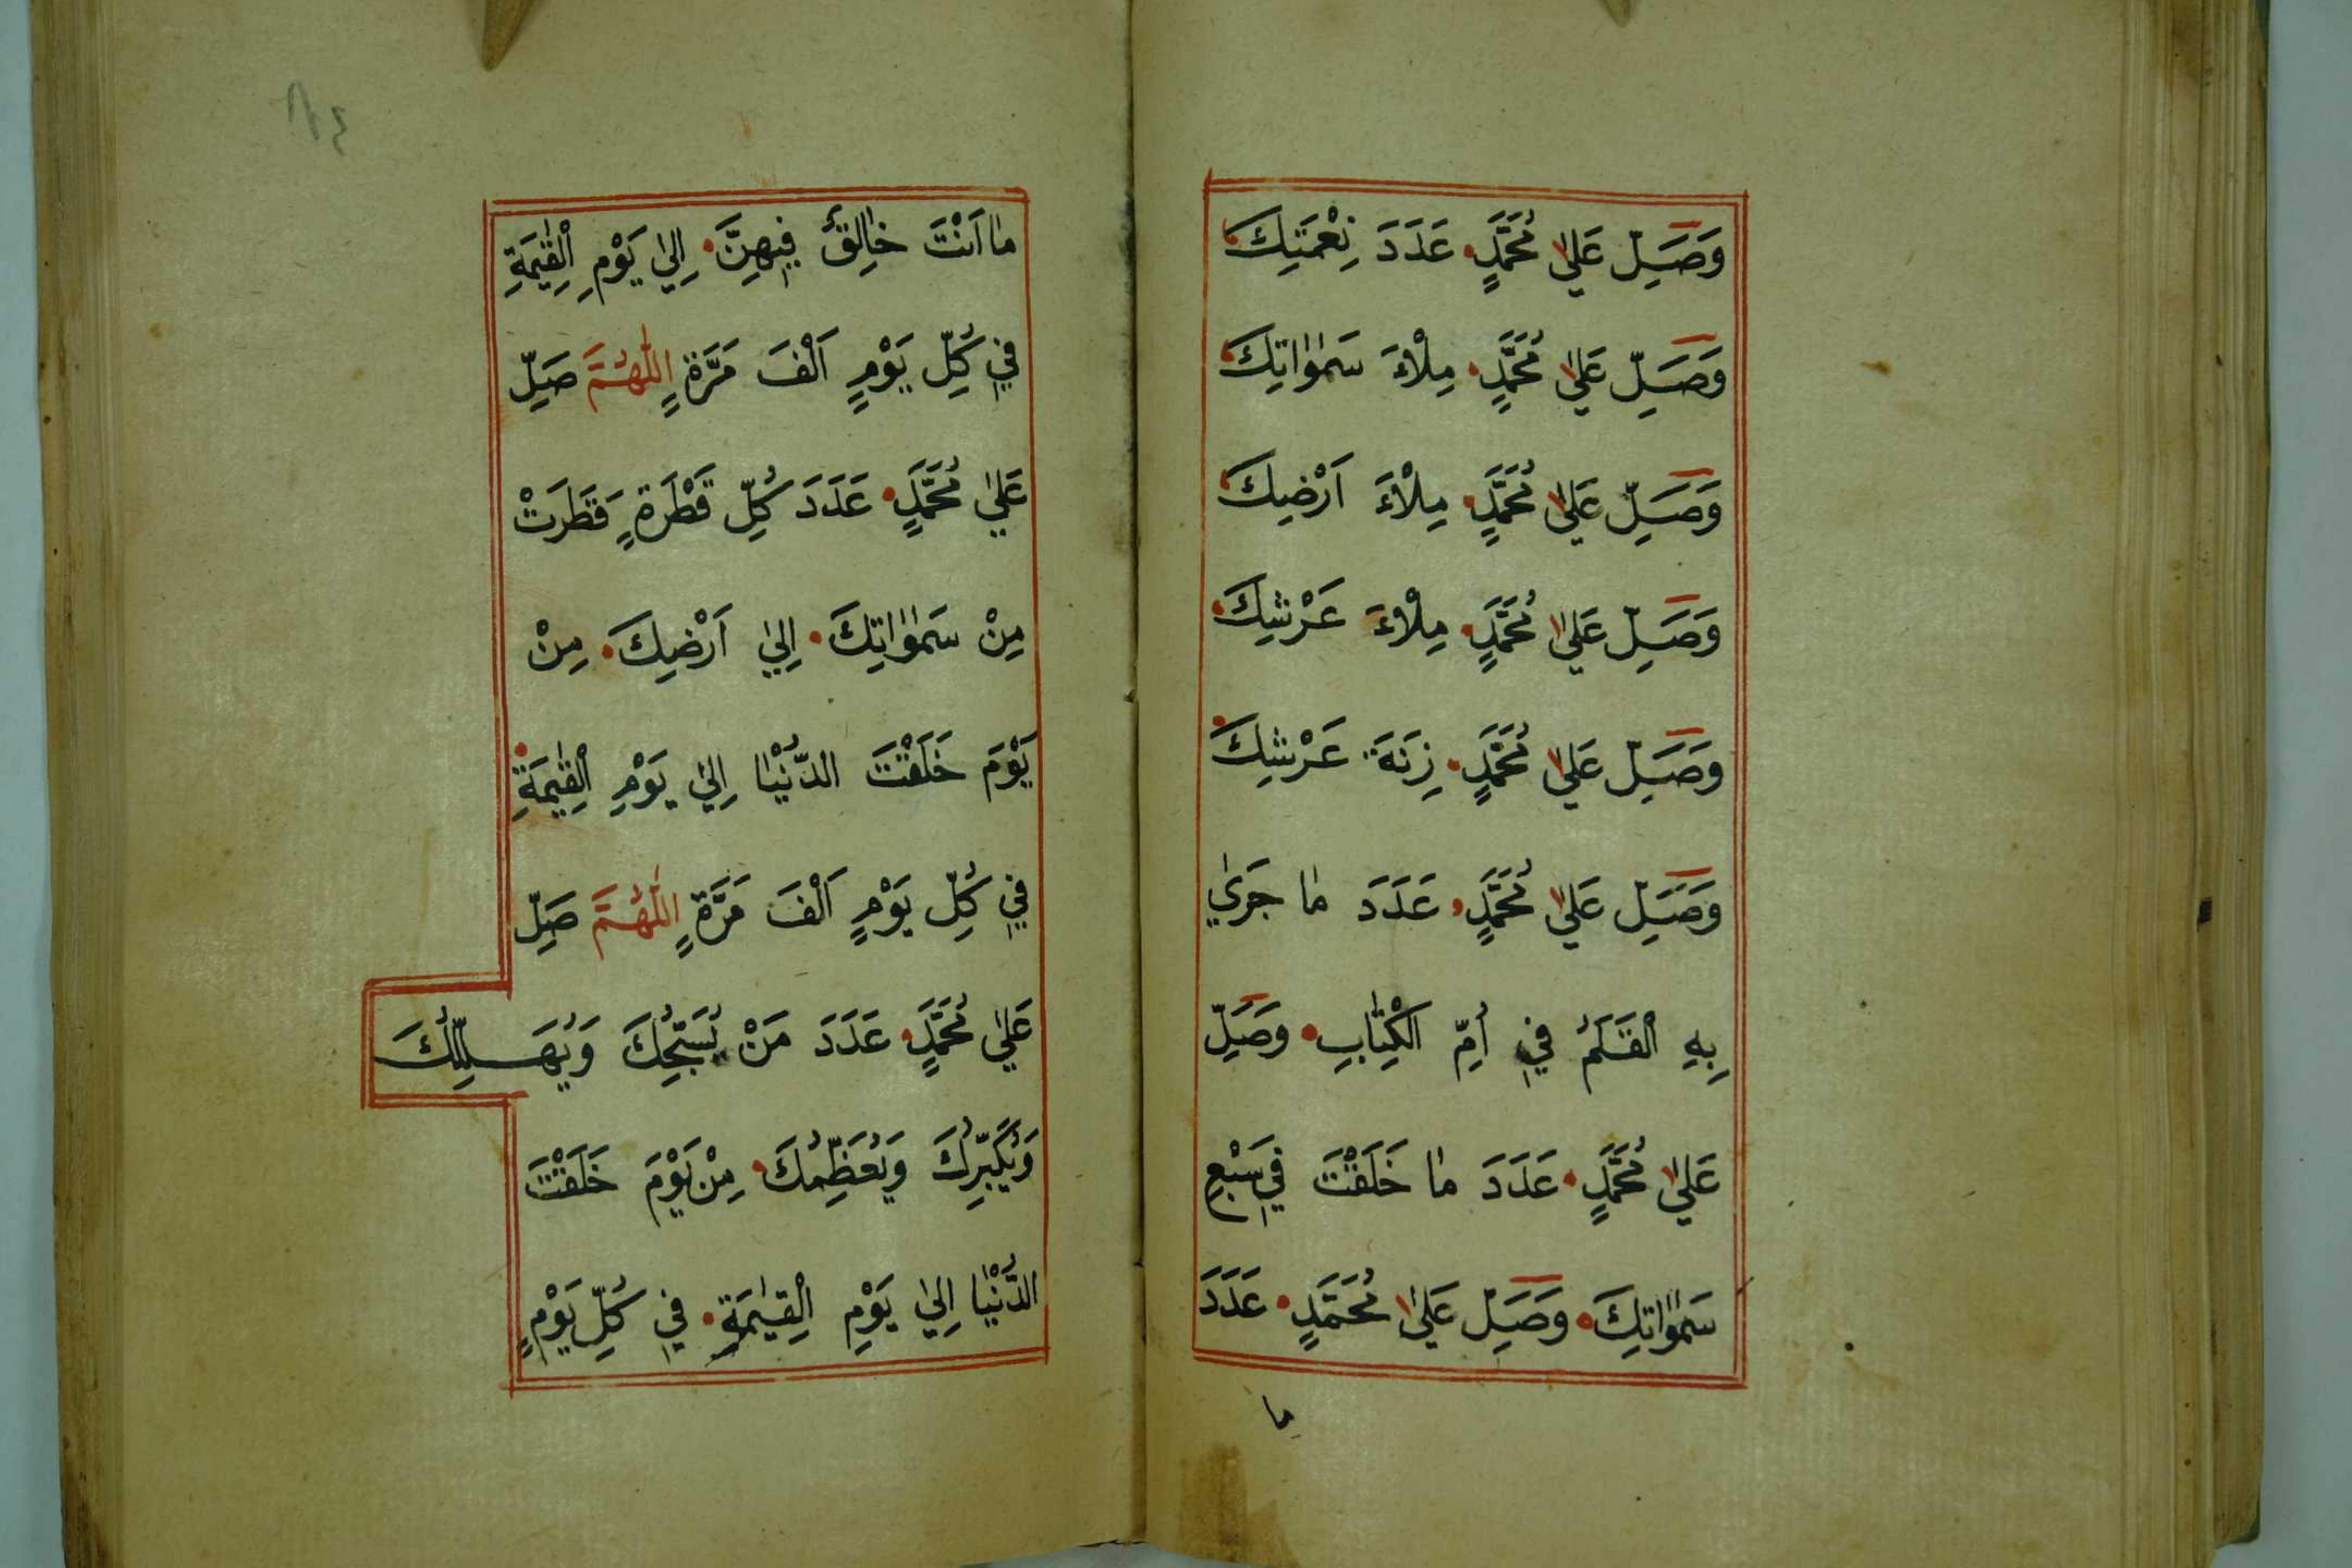 وَصَلِّ عَلٰي مُحَمَّدٍ عَدَدَ نِعْمَتِكَ
وَصَلِّ عَلٰي مُحَمَّدٍ مِلْاءَ سَمٰوٰاتِكَ
وَصَلِّ عَلٰي مُحَمَّدٍ مِلْاءَ اَرْضِكَ
وَصَلِّ عَلٰي مُحَمَّدٍ مِلْاءَ عَرْشِكَ
وَصَلِّ عَلٰي مُحَمَّدٍ زِنَةَ عَرْشِكَ
وَصَلِّ عَلٰي مُحَمَّدٍ عَدَدَ مٰا جَرٰي
بِهِ الْقَلَمُ فِي اُمِّ الْكِتٰابِ وَصَلِّ
عَلٰي مُحَمَّدٍ عَدَدَ مٰا خَلَقْتَ فِي سَبْعِ
سَمٰوٰاتِكَ وَصَلِّ عَلٰي مُحَمَّدٍ عَدَدَ
ما
مٰا اَنْتَ خٰالِقٌ فِيهِنَّ اِلٰي يَوْمِ الْقِيٰمَةِ
فِي كُلِّ يَوْمٍ اَلْفَ مَرَّةٍ اَللّٰهُمَّ صَلِّ
عَلٰي مُحَمَّدٍ عَدَدَ كُلِّ قَطْرَةٍ قَطَرَتْ
مِنْ سَمٰوٰاتِكَ اِلٰي اَرْضِكَ مِنْ
يَوْمَ خَلَقْتَ الدُّنْيٰا اِلٰي يَوْمِ الْقِيٰمَةِ
فِي كُلِّ يَوْمٍ اَلْفَ مَرَّةٍ اَللّٰهُمَّ صَلِّ
عَلٰي مُحَمَّدٍ عَدَدَ مَنْ يُسَبِّحُكَ وَيُهَلِّلُكَ
وَيُكَبِّرُكَ وَيُعَظِّمُكَ مِنْ يَوْمَ خَلَقْتَ
الدُّنْيٰا اِلٰي يَوْمِ الْقِيٰمَةِ فِي كُلِّ يَوْمٍ